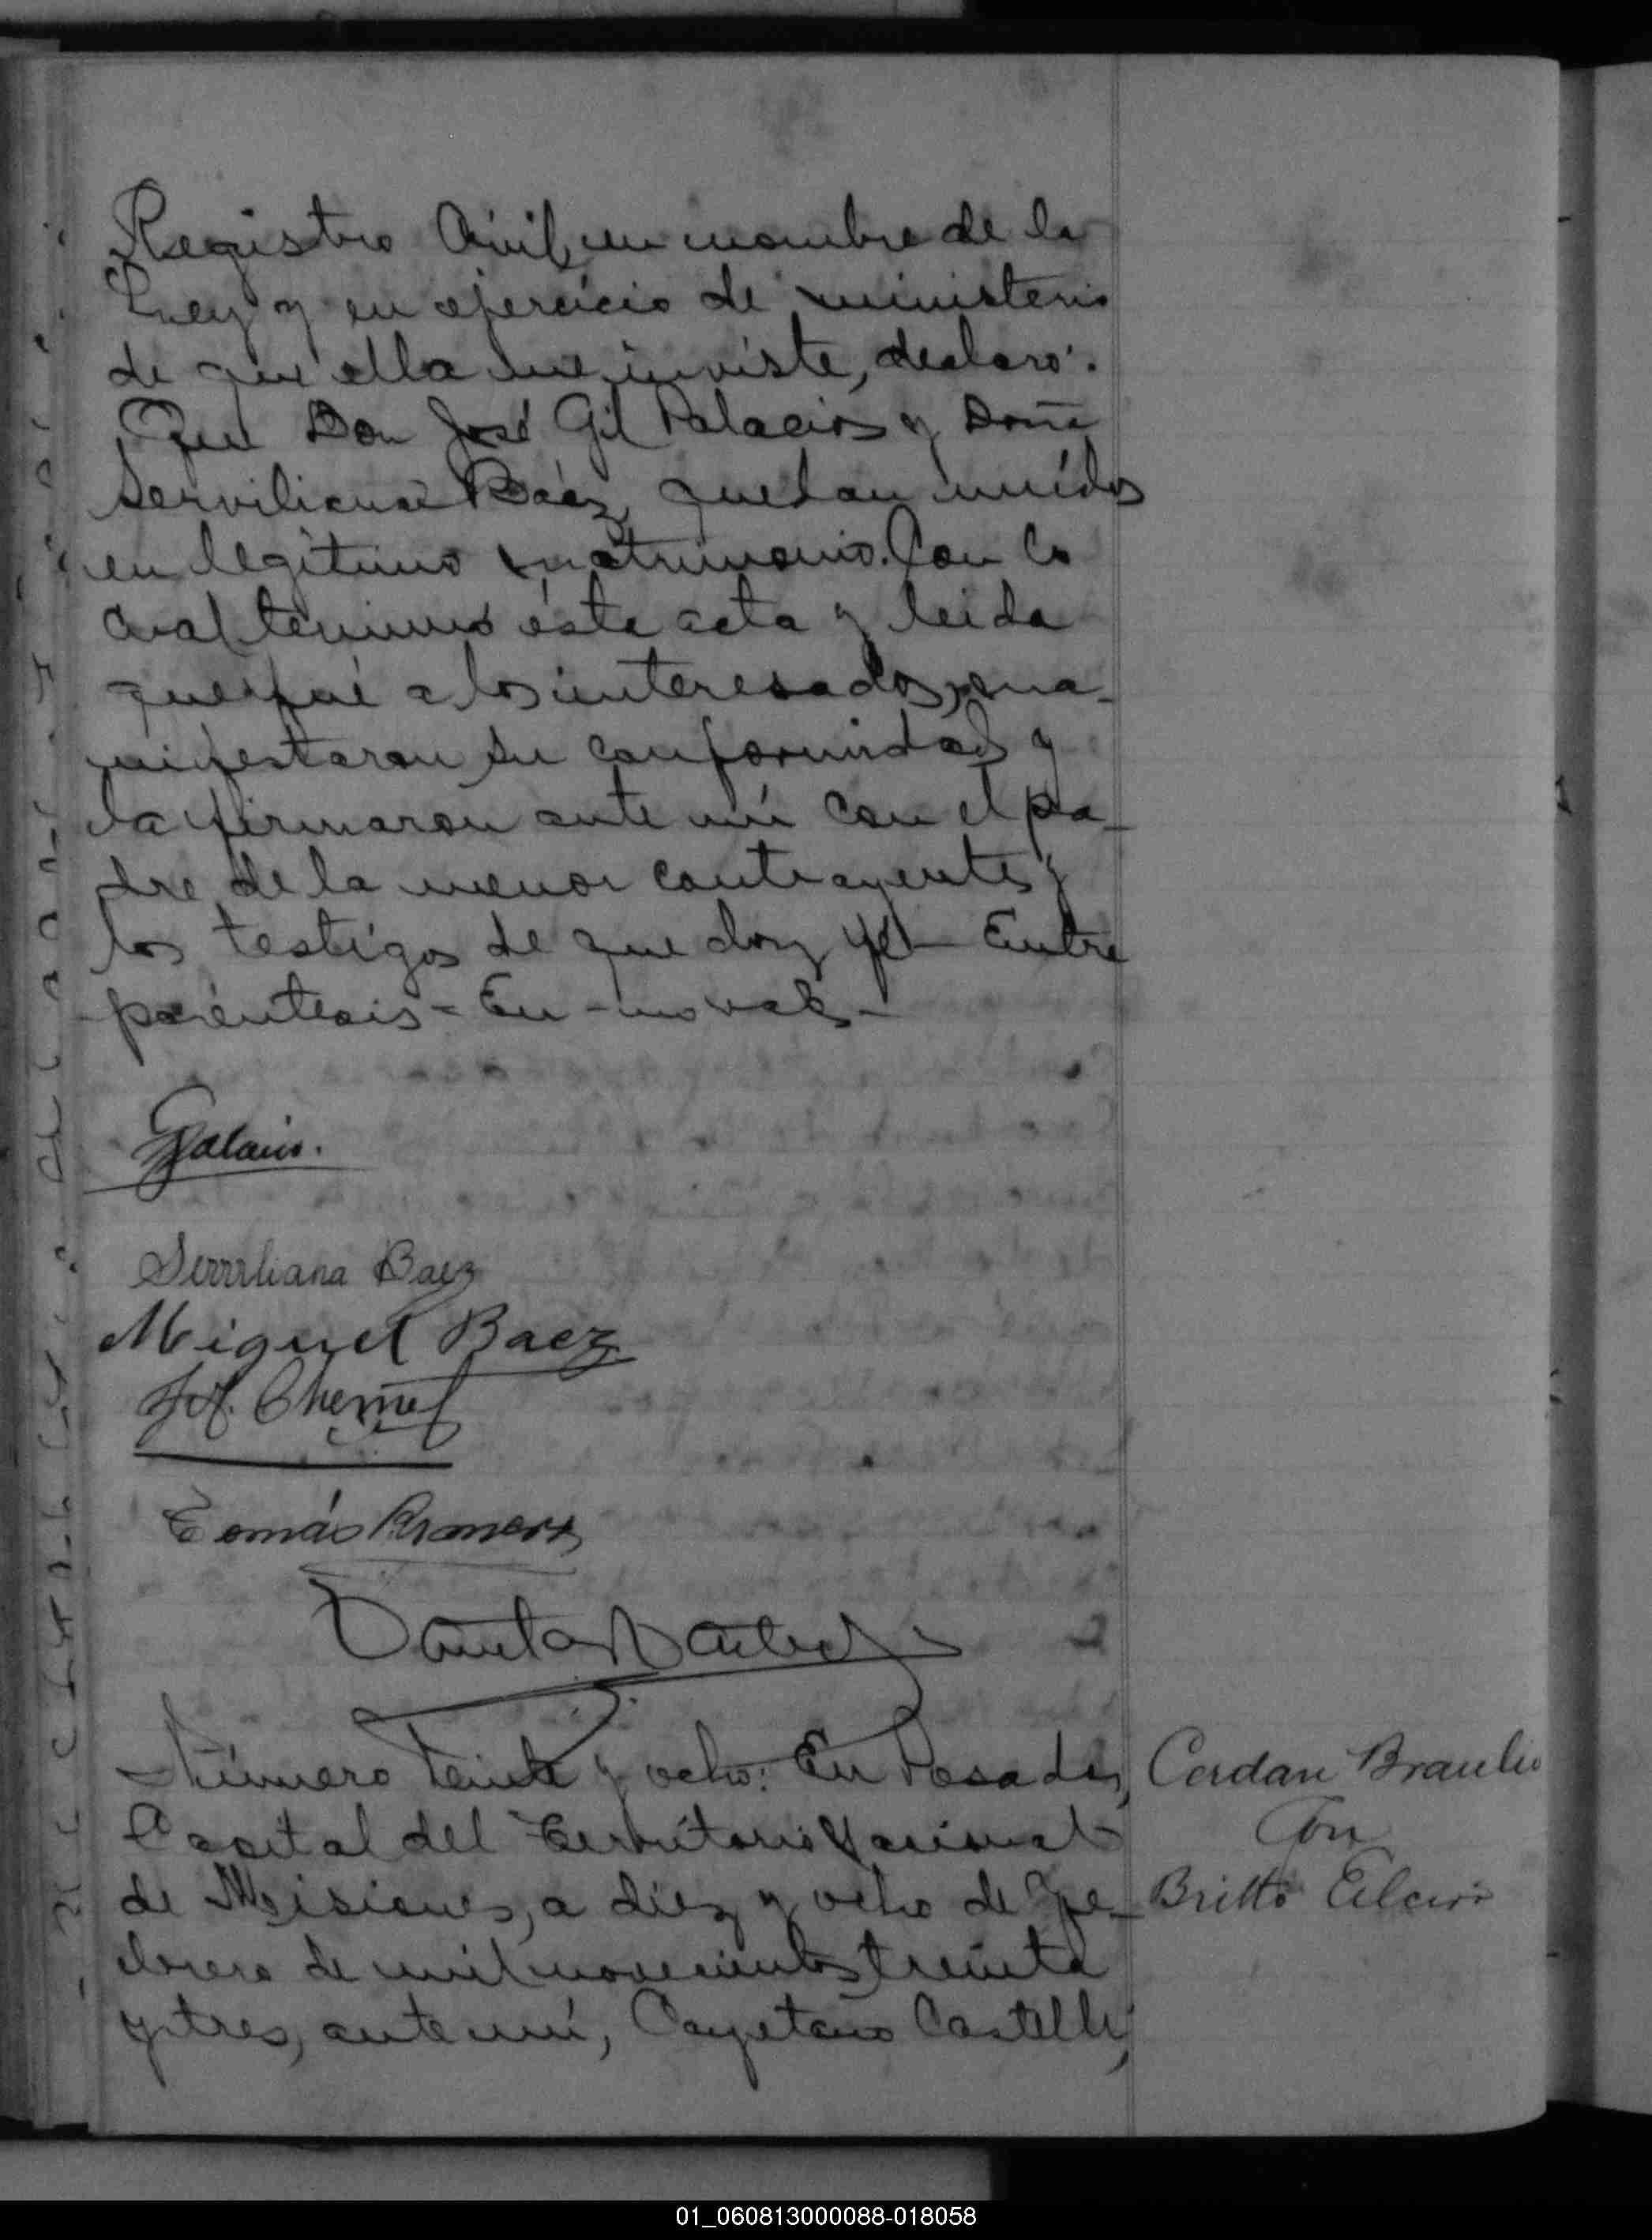 Registro Civil, en nombre de la
Ley y en ejercicio de ministerio
de que ella me inviste, declaro:
Que Don José Gil Palacios y Doña
Serviliana Báez, quedan unídos
en legítimo matrimonio. Con lo
cual termino ésta acta y leida
que fué a los interesados, ma-
nifestaron su conformidad y
la firmaron ante mí con el pa-
dre de la menor contrayente y
los testigos de que doy fé - Entre
paréntesis - En - no vale -
Serviliana Baez
Miguel Baez
Tomás
Número y ocho: En Posadas,
Capital del Territorio Nacional
de Misiones, a diez y ocho de Fe-
brero de mil novecientos treinta
y tres, ante mí, Cayetano Castelli,
Cerdan Braulio
Con
Britto
01_060813000088-018058